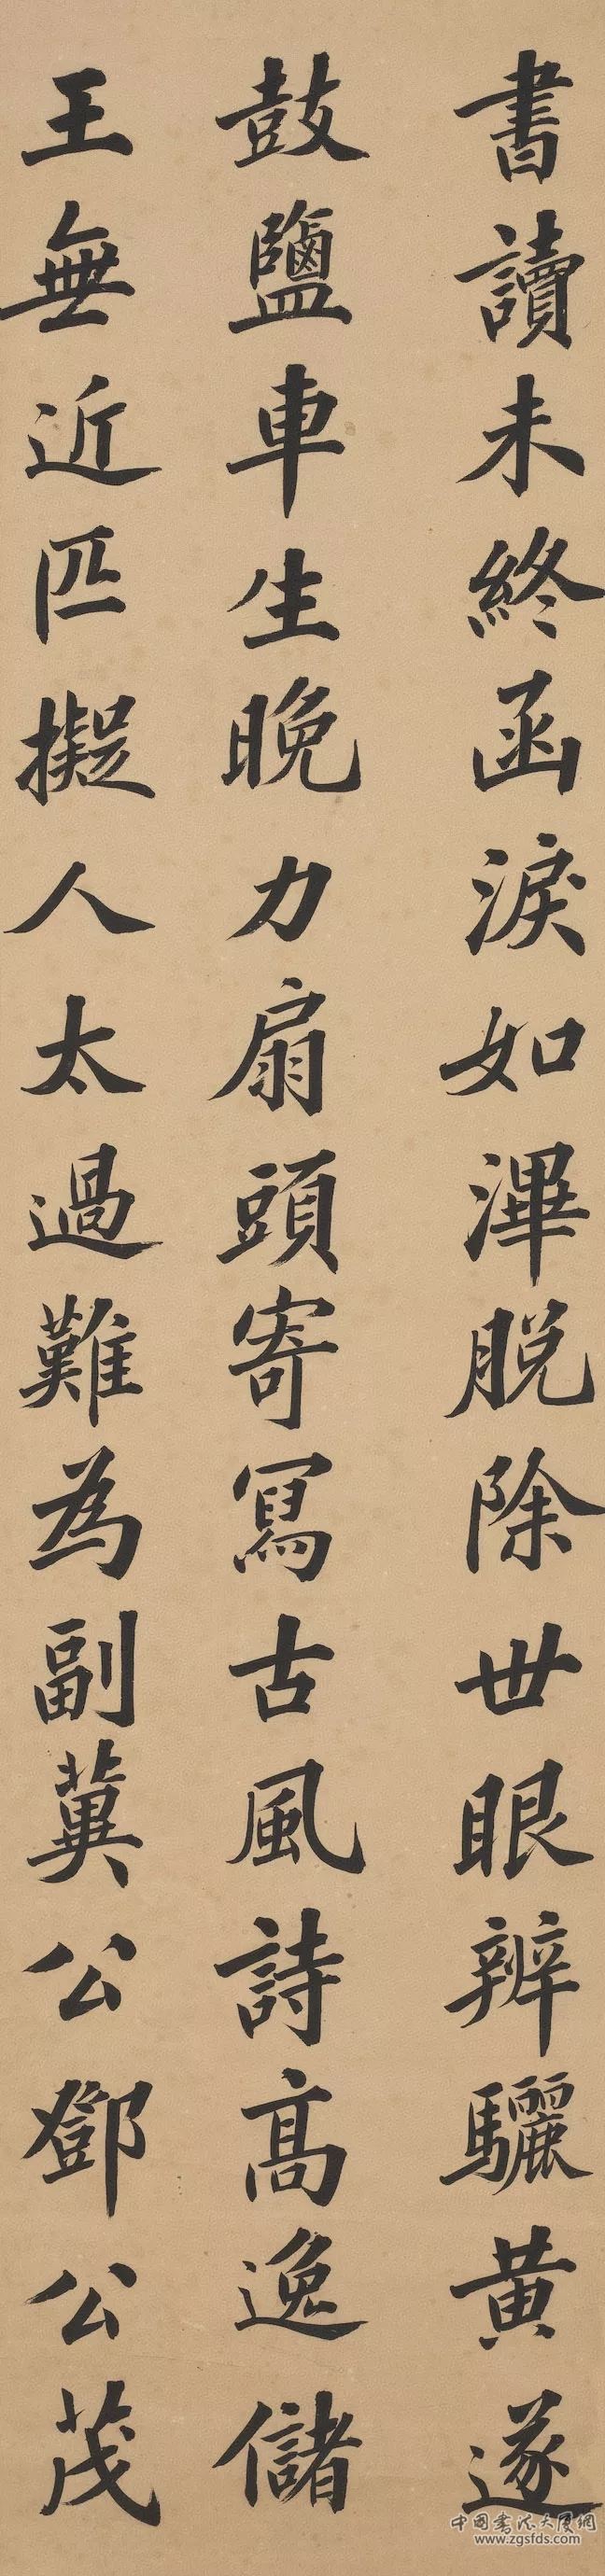 書讀未終函淚如潷脫除世眼辨驪黃遂
鼓鹽車生晚力扇頭寄寫古風詩高逸儲
王無近匹擬人太過難為副冀公鄧公茂
中国书法大厦網
www.zgsfds.com